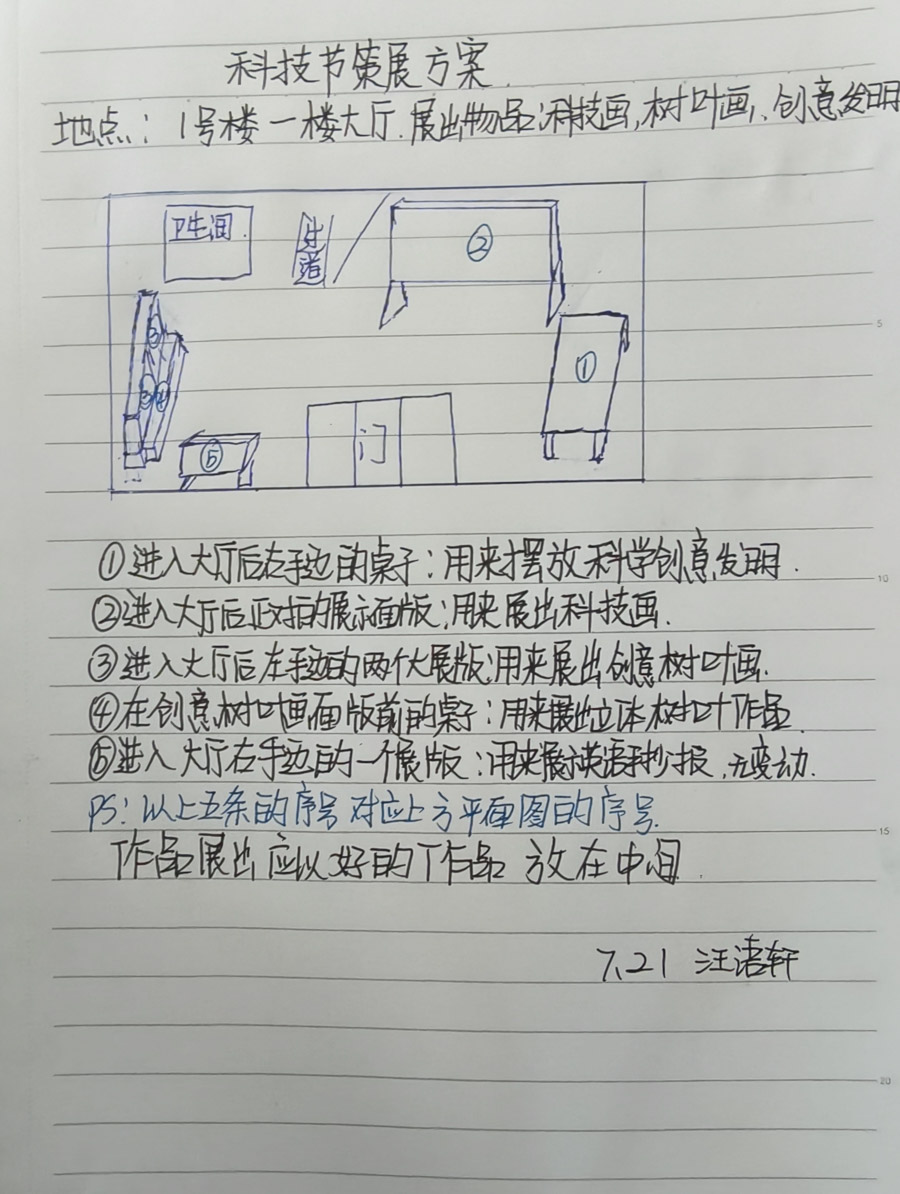 科技节策展方案
地点：1号楼一楼大厅.展出物品:科技画,树叶画、创意发明
卫生间
过道
②
③
①
③④
门
⑤
①进入大厅后右手边的桌子：用来摆放科学创意发明.
②进入大厅后正对面的展示面版:用来展出科技画.
③进入大厅后左手边的两个大展版:用来展出创意树叶画.
④在创意树叶画面版前的桌子：用来展出立体树叶作品.
⑤进入大厅右手边的一个展版:用来展示英语手抄报,无变动.
PS:以上五条的序号对应上方平面图的序号.
作品展出应以好的作品放在中间.
7.21 汪语轩
5
10
15
20